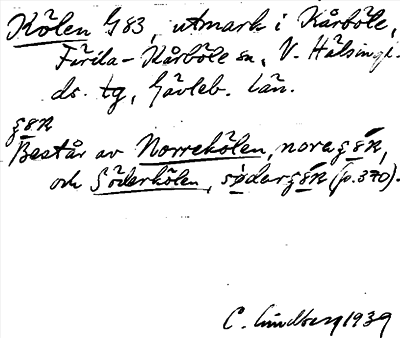 Kölen G83, utmark i Kårböle,
Färila-Kårböle sn, V. Hälsingl.
ds. tg, Gävleb. län.
Består av Norrekölen,
och Söderkölen, (p.370).
C. Lindberg 1939